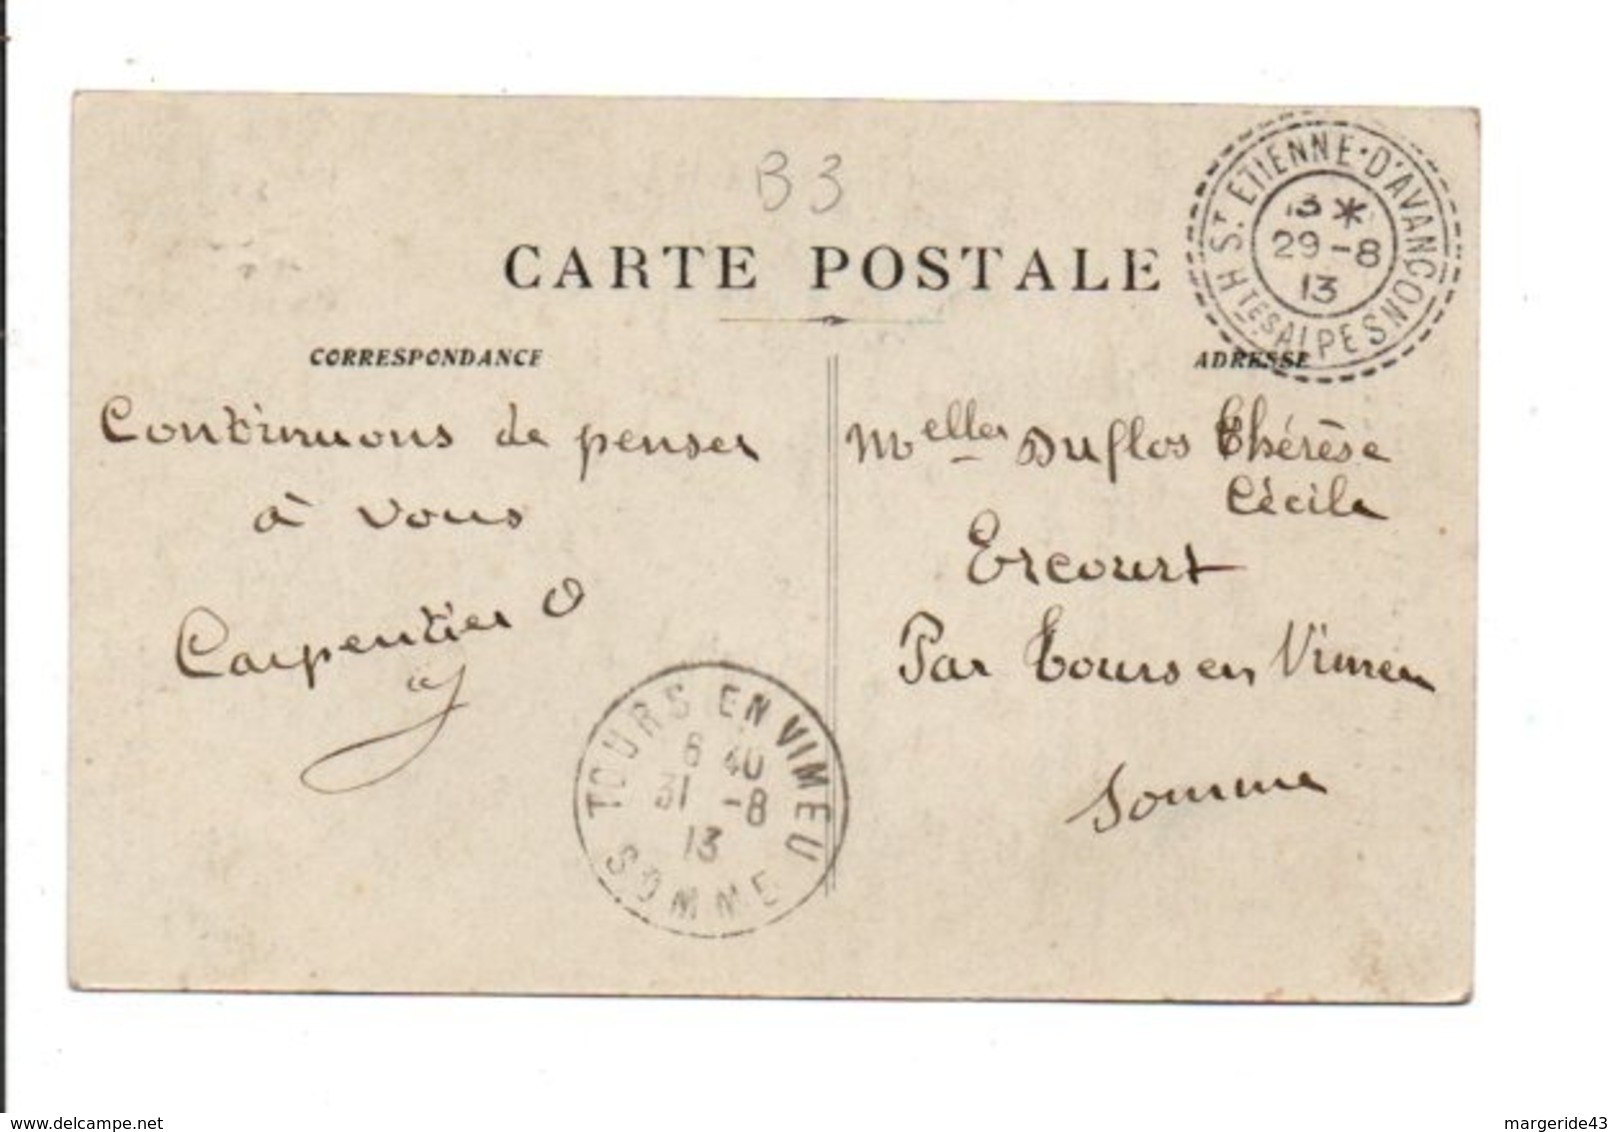 B3
CARTE POSTALE
CORRESPONDANCE
ADRESSE
ST ETIENNE-D'AVANCON
13 *
29-8
13
HTES ALPES
Continuons de penser
à vous
Carpentier O
Melles Duflos Thérèse
Cécile
Ercourt
Par Tours en Vimeu
Somme
TOURS EN VIMEU
6 40
31 -8
13
SOMME
www.delcampe.net
margeride43